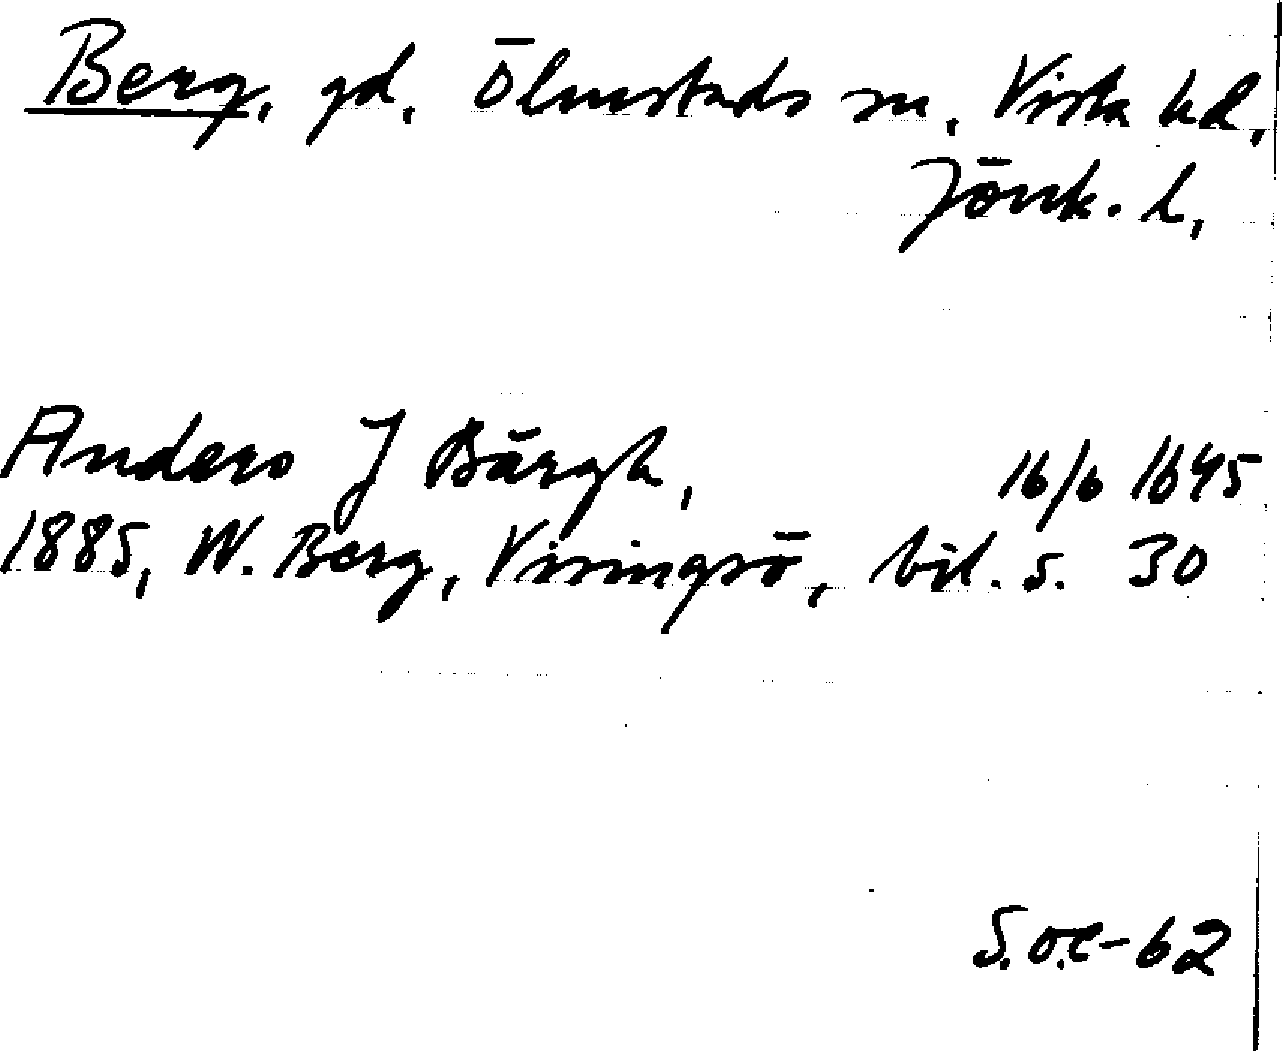 Berg, gd, Ölmstads sn, Vista hd,
Jönk. l,
Anders J Bärgh, 16/6 1645
1885, W. Berg, Visingsö, bil. s. 30
S.O.E-62